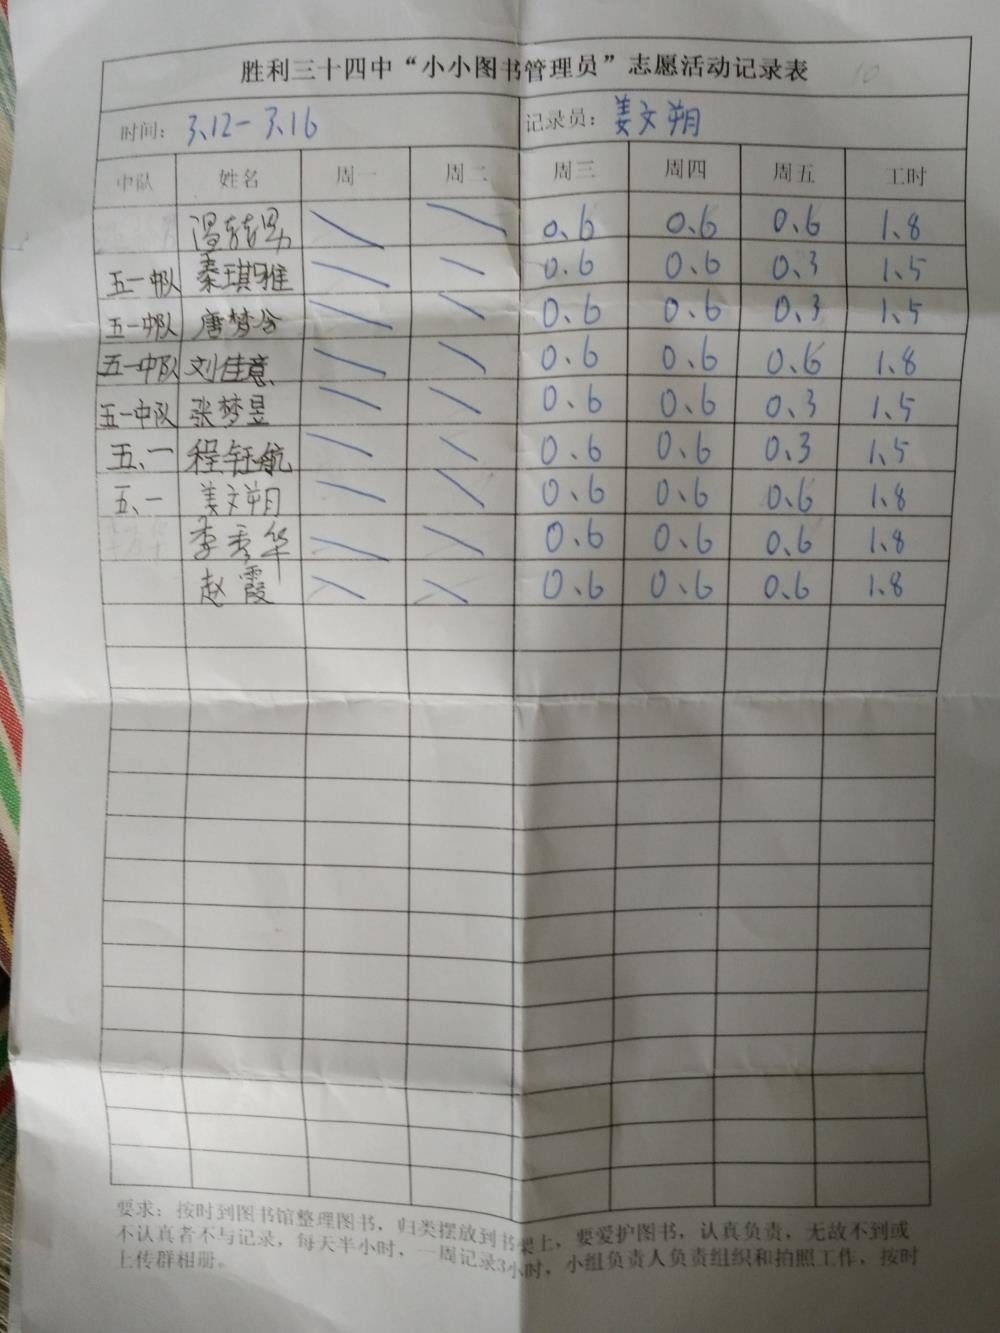 胜利三十四中“小小图书管理员”志愿活动记录表
时间：3、12－3、16 记录员：姜文朔
中队 姓名 周一 周二 周三 周四 周五 工时
0、6 0、6 0、6 1、8
五一中队 秦琪雅 0、6 0、6 0、3 1、5
五一中队 唐梦 0、6 0、6 0、3 1、5
五一中队 刘佳意 0、6 0、6 0、6 1、8
五一中队 张梦昱 0、6 0、6 0、3 1、5
五、一 程钰航 0、6 0、6 0、3 1、5
五、一 姜文朔 0、6 0、6 0、6 1、8
李秀华 0、6 0、6 0、6 1、8
赵霞 0、6 0、6 0、6 1、8
要求：按时到图书馆整理图书，归类摆放到书架上，要爱护图书，认真负责，无故不到或
不认真者不与记录，每天半小时，一周记录3小时，小组负责人负责组织和拍照工作，按时
上传群相册。